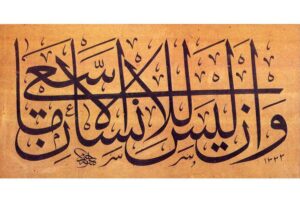 وَاَنْ لَيْسَ لِلْاِنْسَانِ اِلَّا مَا سَعٰى